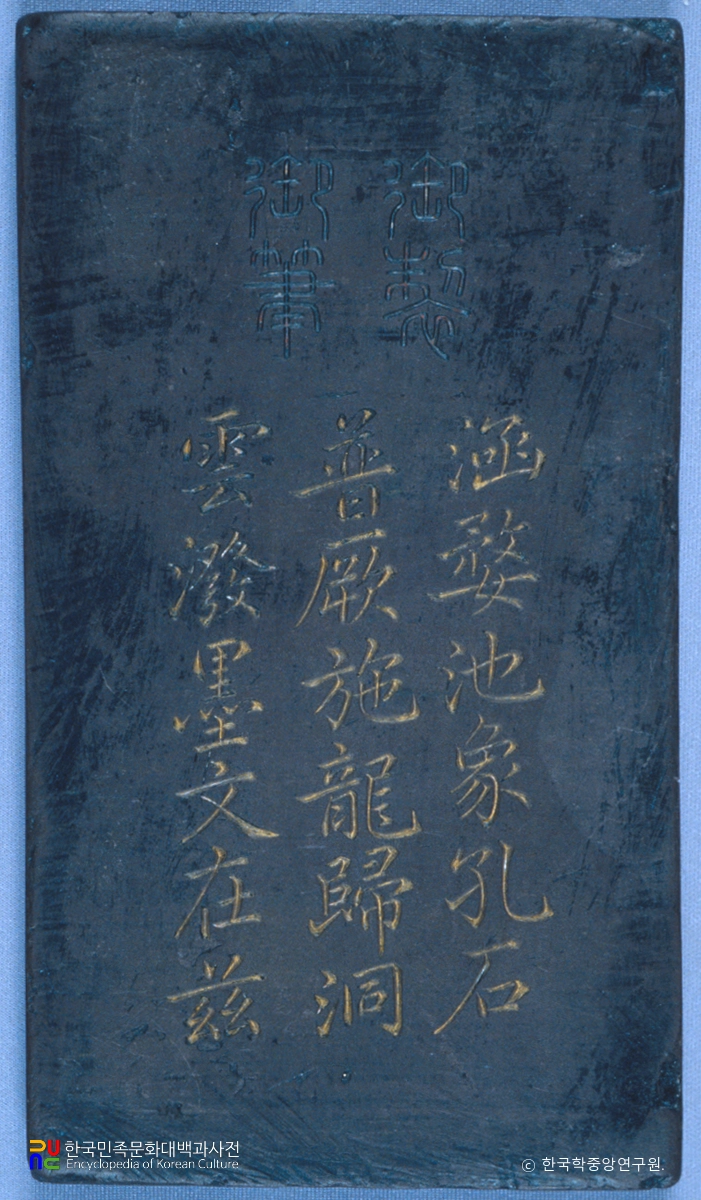 御製
御筆
涵婺池象孔石
普厥施龍歸洞
雲潑墨文在玆
한국민족문화대백과사전
Encyclopedia of Korean Culture
© 한국학중앙연구원.